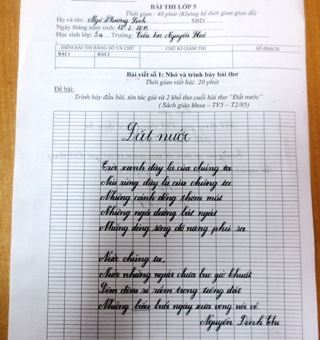 BÀI THI LỚP 5
Thời gian : 40 phút (Không kể thời gian giao đề)
Họ và tên: Ngô Phương Linh SBD
Ngày tháng năm sinh:
Học sinh lớp: 5a Trường: Tiểu học Nguyễn Huệ
ĐIỂM BÀI THI BẰNG SỐ VÀ CHỮ CHỮ KÍ GIÁM THỊ SỐ PHÁCH
BÀI 1 BÀI 2
Bài viết số 1: Nhớ và trình bày bài thơ
Thời gian viết bài: 20 phút
Đề bài:
Trình bày đầu bài, tên tác giả và 2 khổ thơ cuối bài thơ "Đất nước"
( Sách giáo khoa – TV5 – T2/95)
Đất nước
Trời xanh đây là của chúng ta
Núi rừng đây là của chúng ta
Những cánh đồng thơm mát
Những ngả đường bát ngát
Những dòng sông đỏ nặng phù sa
Nước chúng ta,
Nước những người chưa bao giờ khuất
Đêm đêm rì rầm trong tiếng đất
Những buổi ngày xưa vọng nói về
Nguyễn Đình Thi